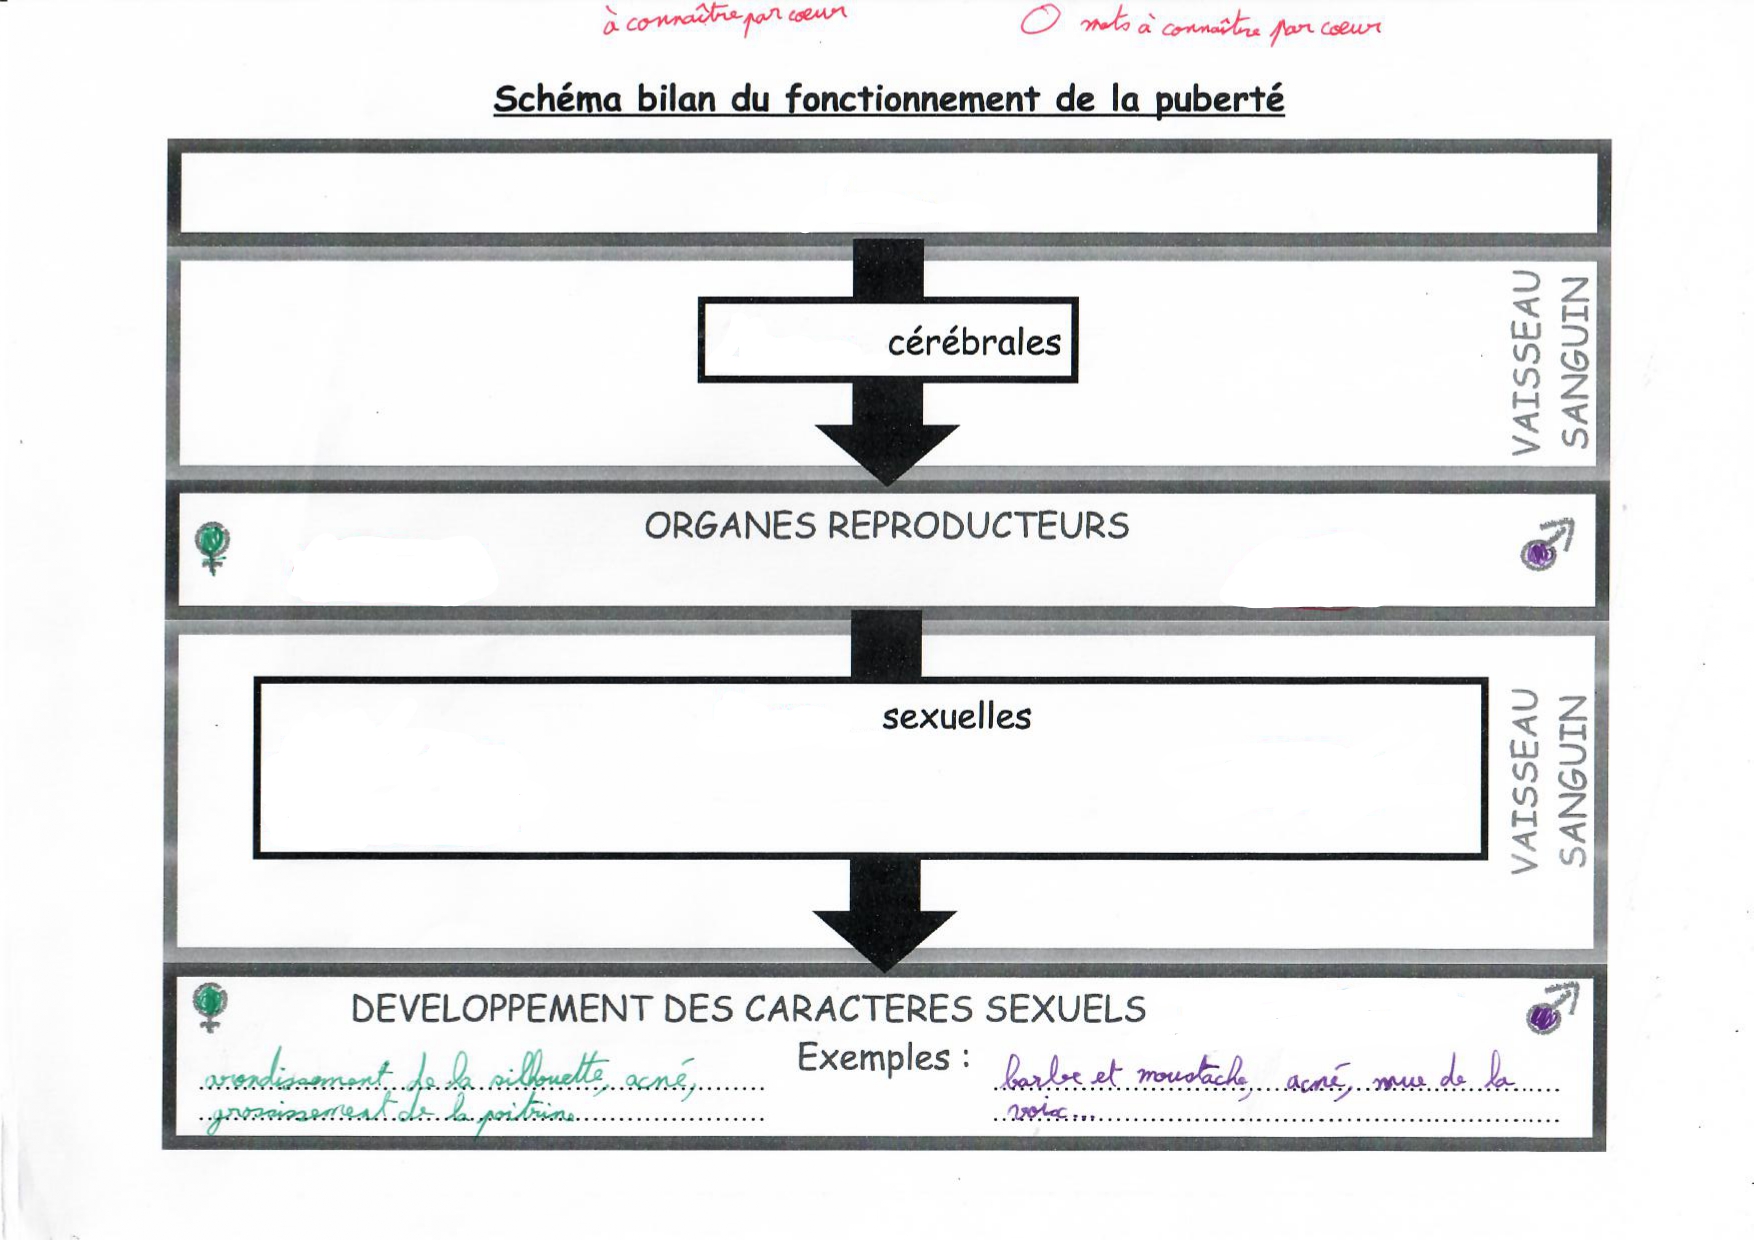 à connaître par coeur
O mots à connaître par coeur
Schéma bilan du fonctionnement de la puberté
cérébrales
VAISSEAU
SANGUIN
ORGANES REPRODUCTEURS
sexuelles
VAISSEAU
SANGUIN
DEVELOPPEMENT DES CARACTERES SEXUELS
Exemples :
arondissement de la silhouette, acné,
grossissement de la poitrine
barbe et moustache, acné, mue de la
voix...